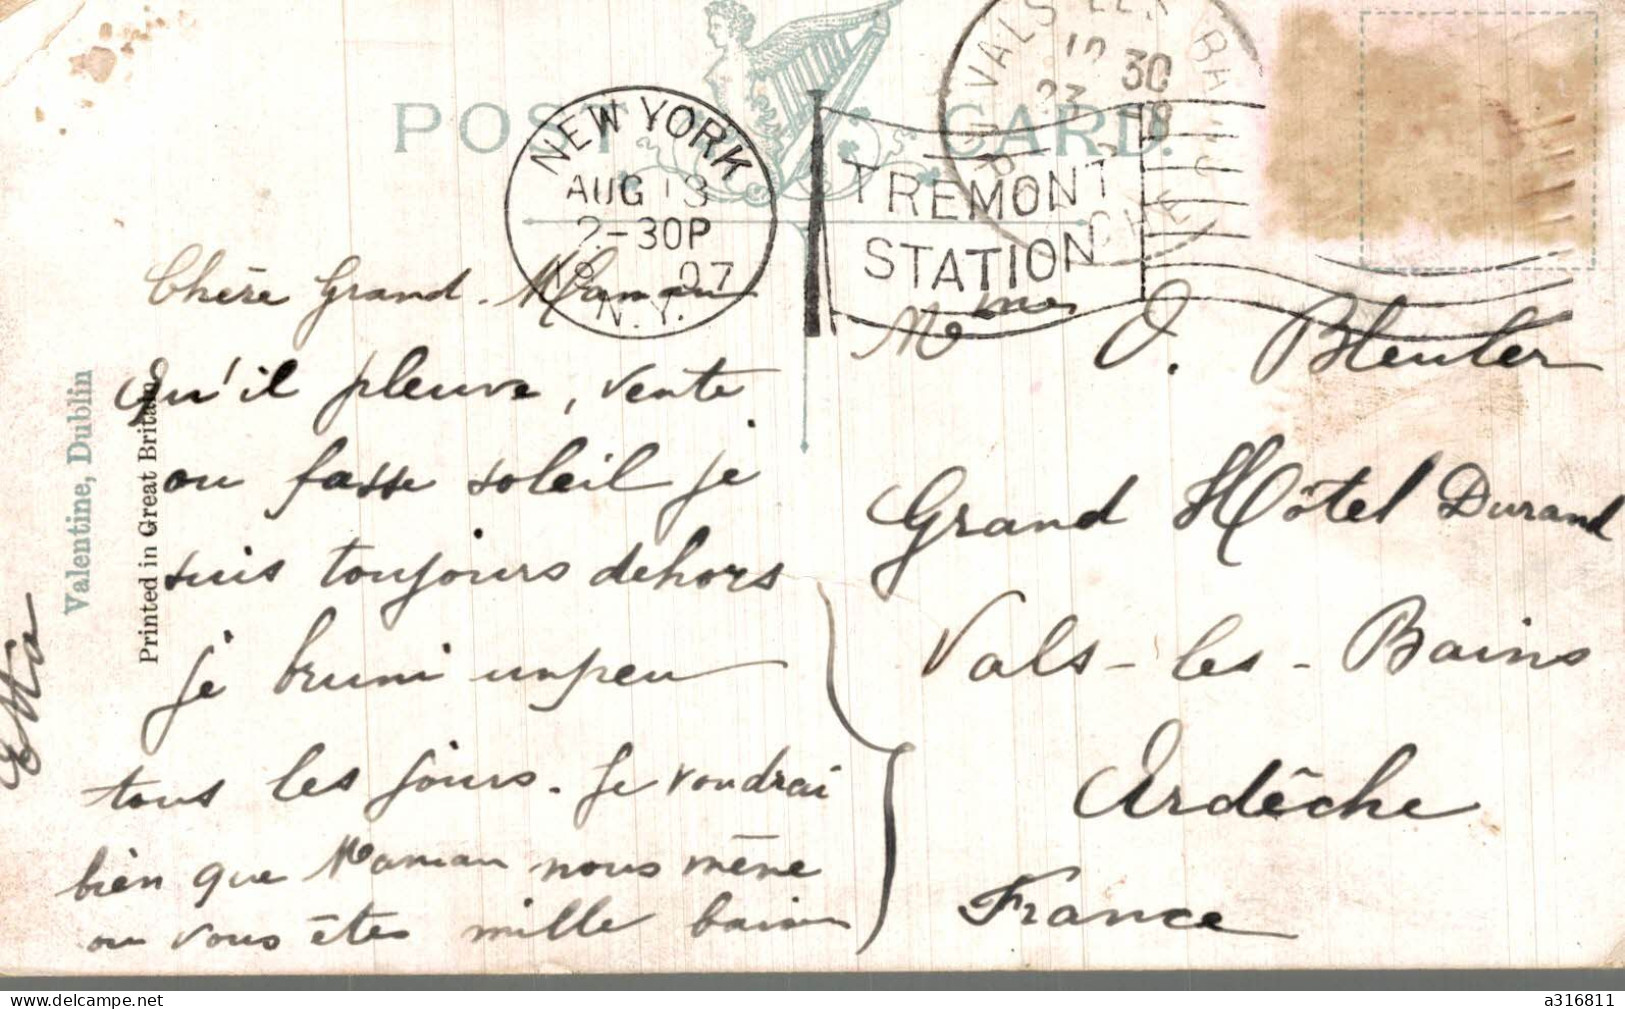 POST CARD.
NEW YORK
AUG 13
2-30P
19 07
N.Y.
TREMONT
STATION
VALS LES BAINS
30
Chère Grand-Maman
Qu'il pleuve, vente
ou fasse soleil je
suis toujours dehors
je bruni un peu
tous les jours. Je voudrai
bien que Maman nous mène
ou vous êtes mille
Etta
Valentine, Dublin
Printed in Great Britain
Mme O. Bleuler
Grand Hôtel Durand
Vals-les-Bains
Ardêche
France
delcampe.net
a316811